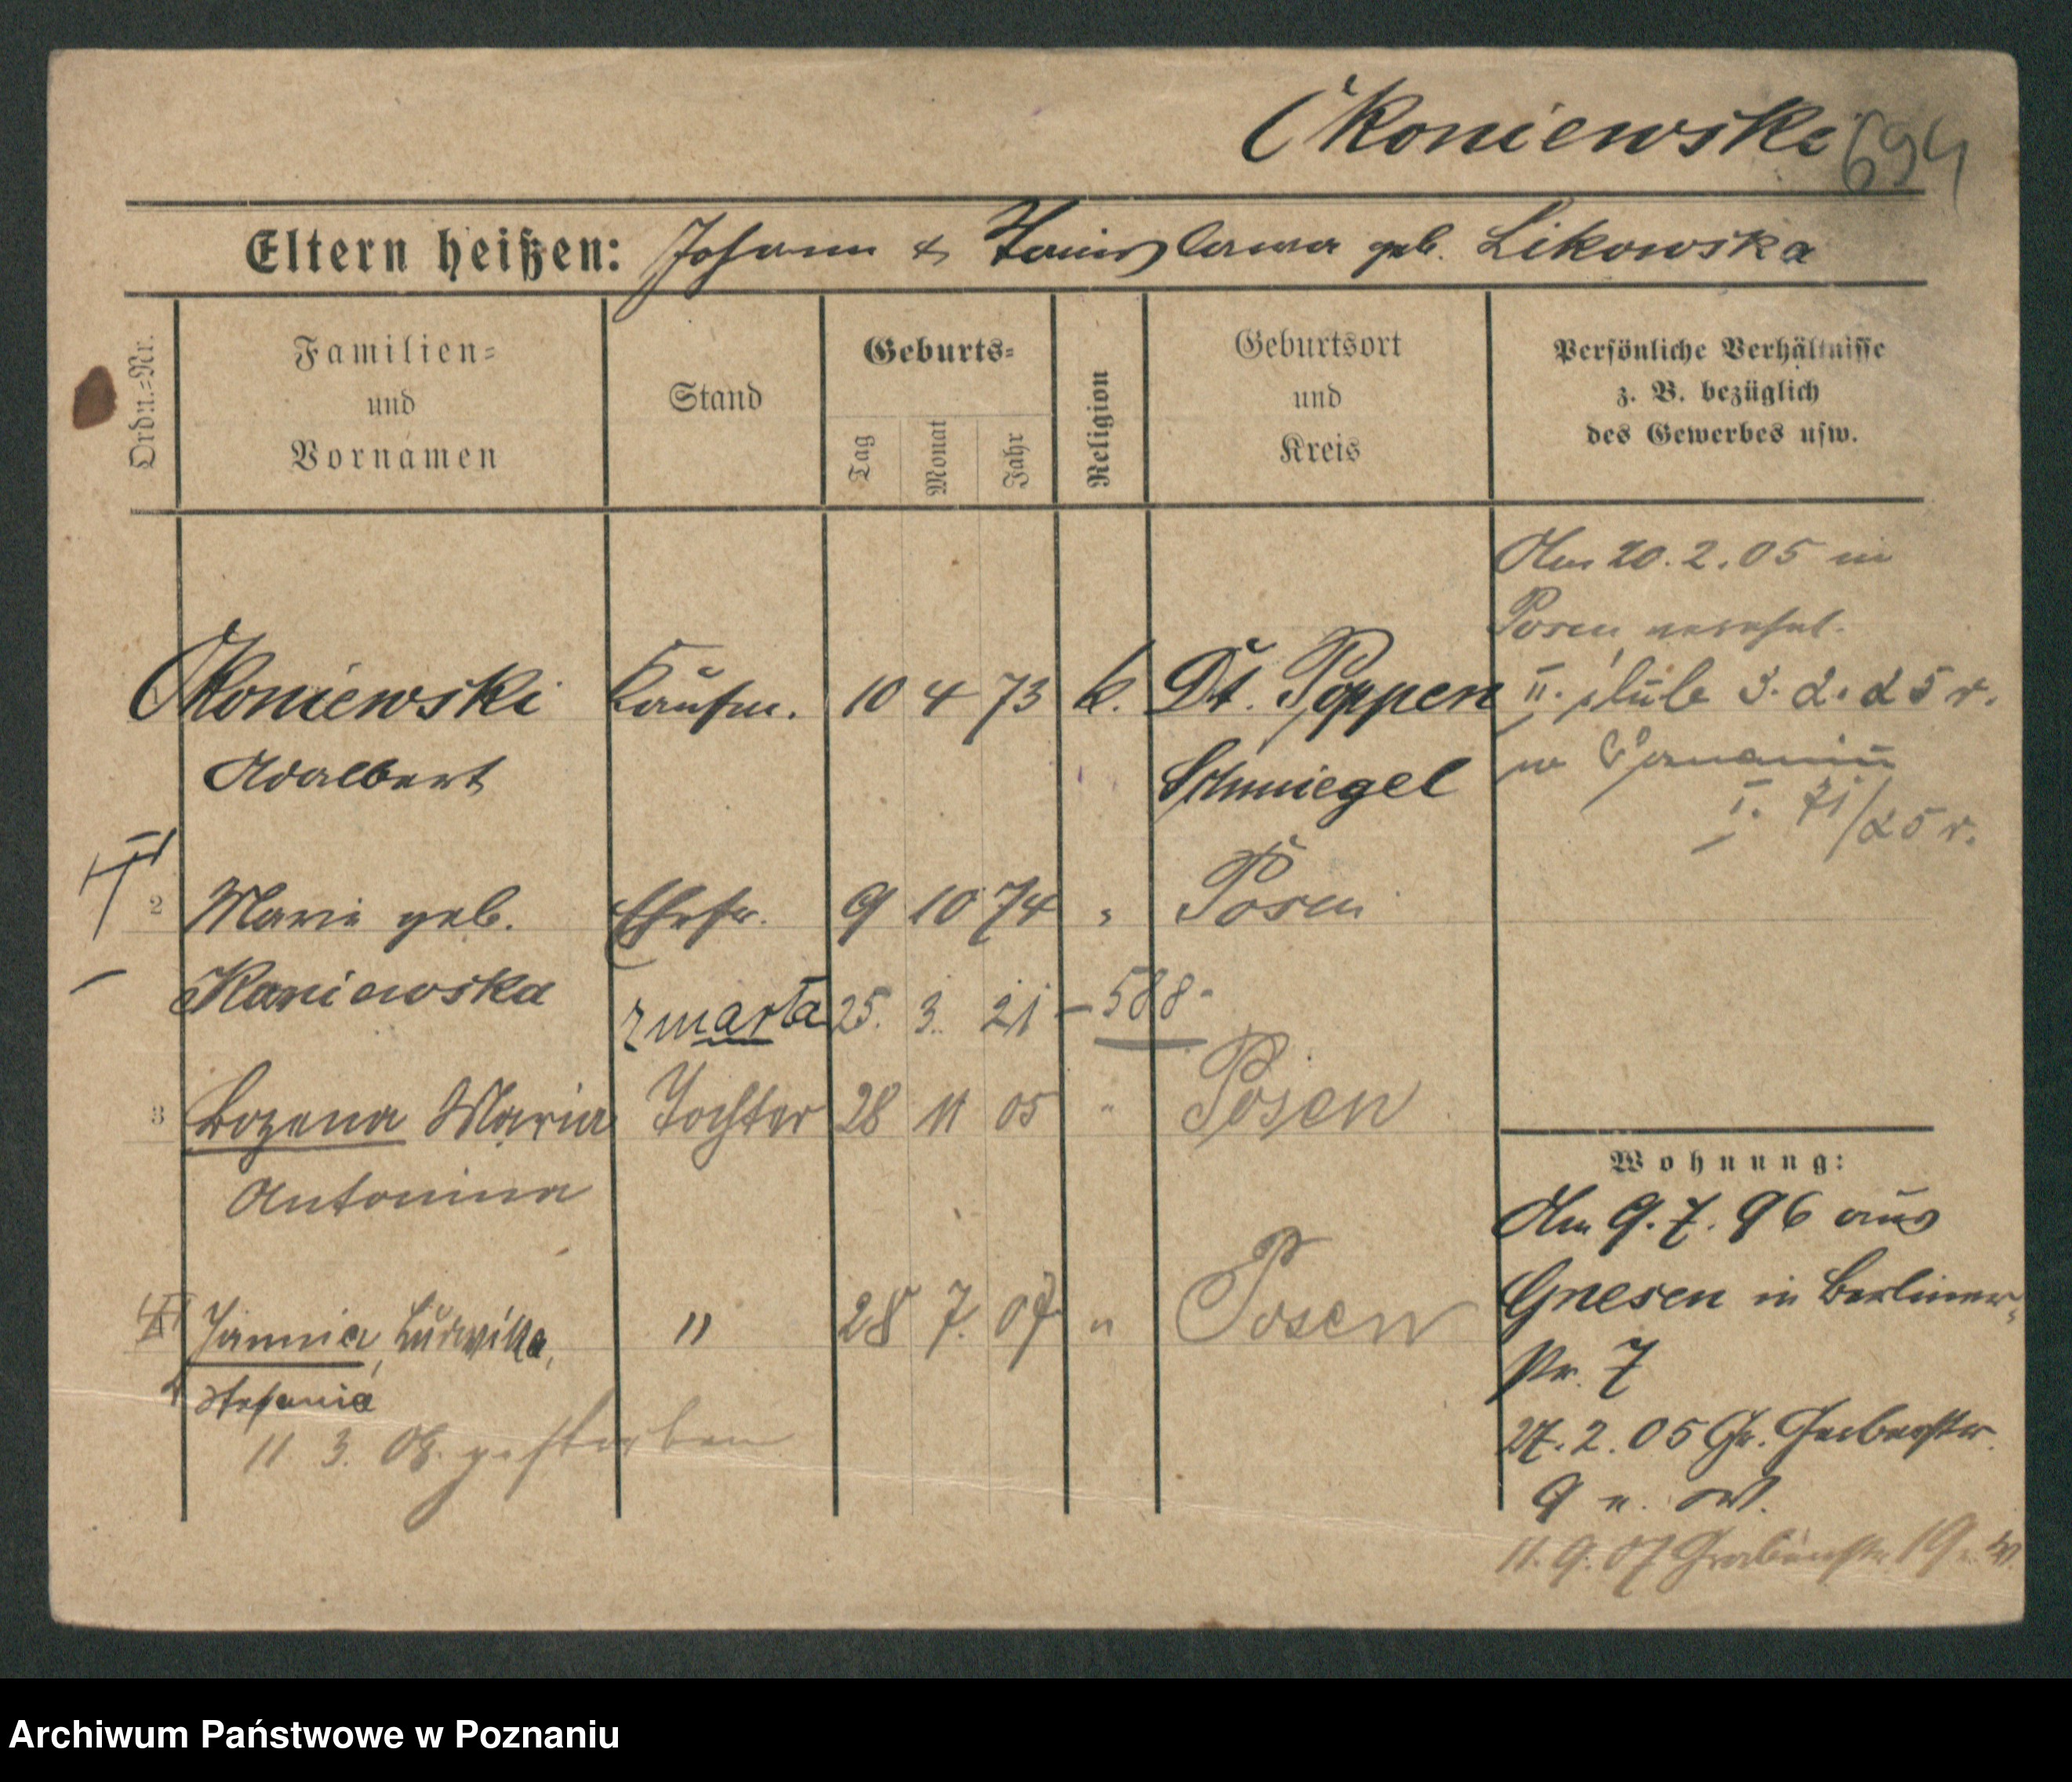 Okoniewski 694
Eltern heißen: Johann & Stanislawa geb. Likowska
Ordn.=Nr.
Familien=
und
Vornamen
Stand
Geburts=
Tag
Monat
Jahr
Religion
Geburtsort
und
Kreis
Persönliche Verhältnisse
z. B. bezüglich
des Gewerbes usw.
Am 20.2.05 in
Posen verehel.
Okoniewski Kaufm. 10 4 73 k. Dt. Poppen
II. ślub 3.2.25 r.
Adalbert Schmiegel
w Poznaniu
I. 71/25 r.
2 Marie geb. Ehefr. 9 10 74 " Posen
Kaniewska
zmarła 25. 3. 21 – 588 -
3 Bozena Maria Tochter 28 11 05 " Posen
Antonina
Wohnung:
Am 9.7.96 aus
Gnesen in Berliner-
str. 7
Janina, Ludwika, " 28 7. 07 " Posen
Stefania
11 3. 08. gestorben
27.2.05 Gr. Gerberstr.
9 u. W.
11.9.07 Grabenstr. 19 u. W.
Archiwum Państwowe w Poznaniu